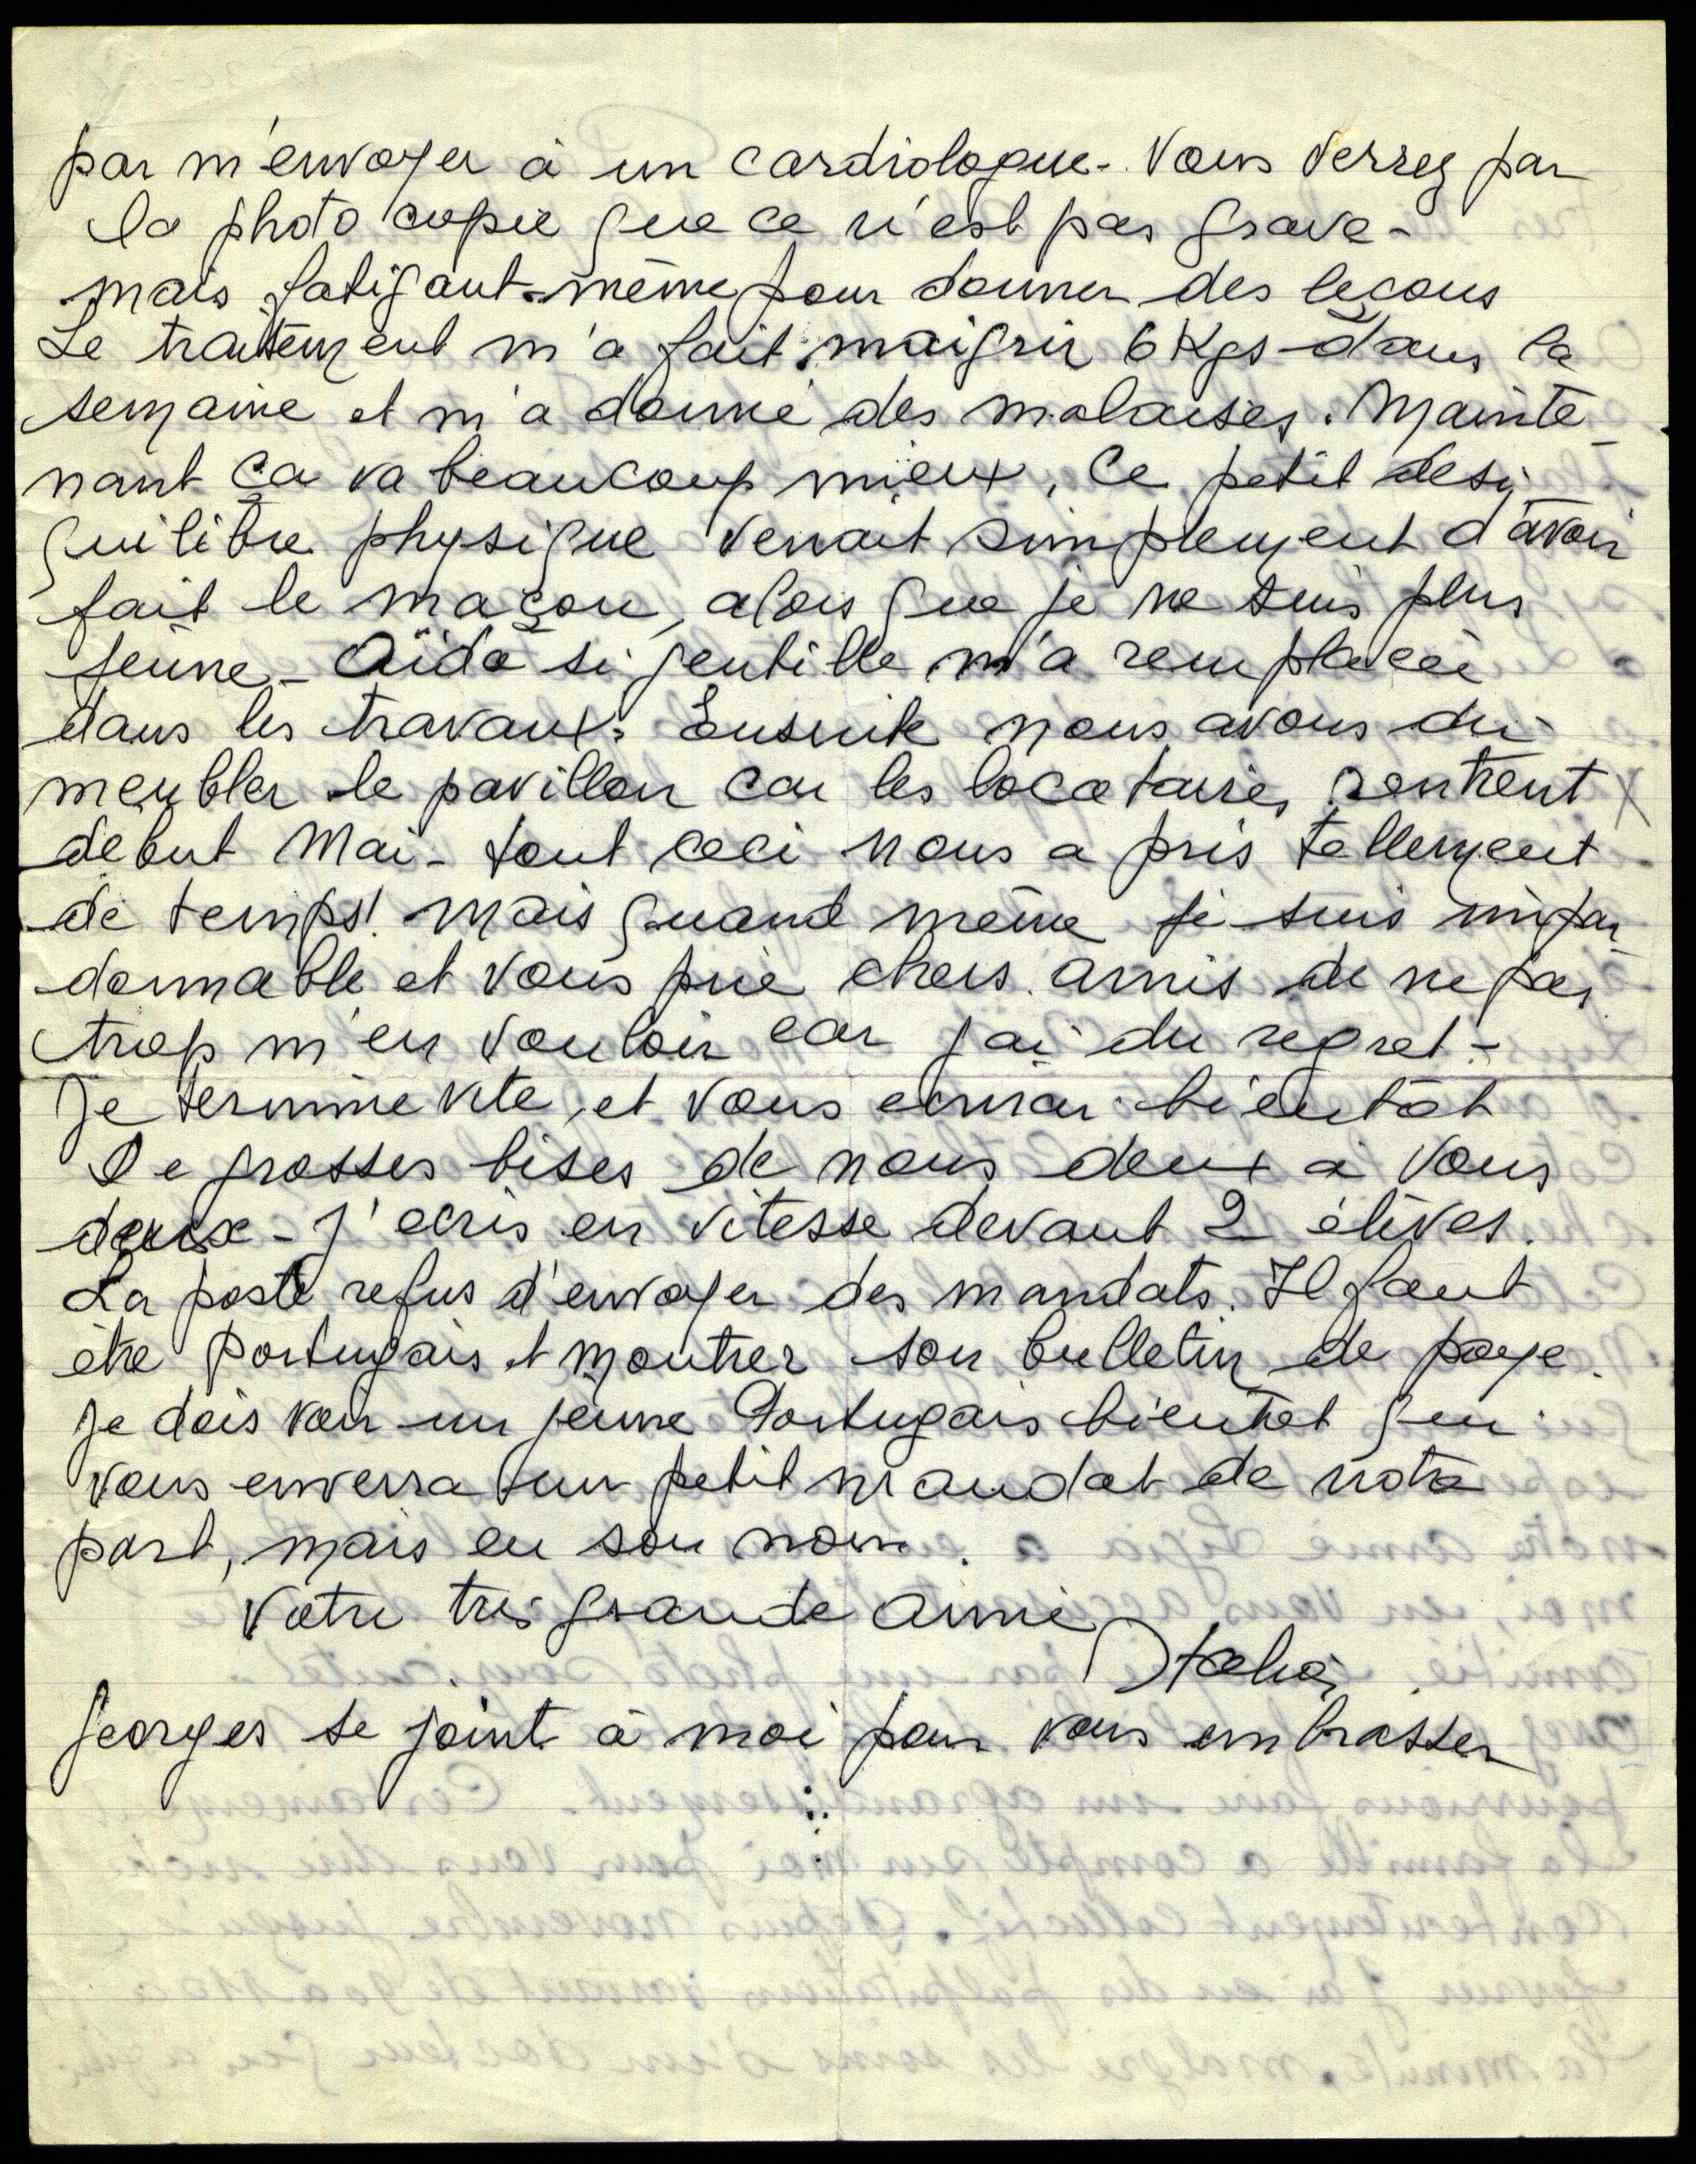 par m'envoyer à un cardiologue - Vous verrez par
la photo copie que ce n'est pas grave -
mais fatigant même pour donner des leçons
Le traitement m'a fait maigrir 6 Kgs dans la
semaine et m'a donné des malaises. Mainte
nant ça va beaucoup mieux, Ce petit desi
quilibre physique venait simplement d'avoir
fait le maçon, alors que je ne suis plus
jeune - Aïda si gentille m'a remplacée
dans les travaux. Ensuite nous avons du
meubler le pavillon car les locataires rentrent X
debut Mai - tout ceci nous a pris tellement
de temps! mais quand même je suis impar
donnable et vous prie chers amis de ne pas
trop m'en vouloir car j'ai du regret -
Je termine vite, et vous ecrirai bientôt
De grosses bises de nous deux à vous
deux - J'ecris en vitesse devant 2 élèves.
La poste refus d'envoyer des mandats. Il faut
être Portugais et montrer son bulletin de paye.
Je dois voir un jeune Portugais bientôt qui
vous enverra un petit mandat de notre
part, mais en son nom.
Votre très grande amie
Georges se joint à moi pour vous embrasser